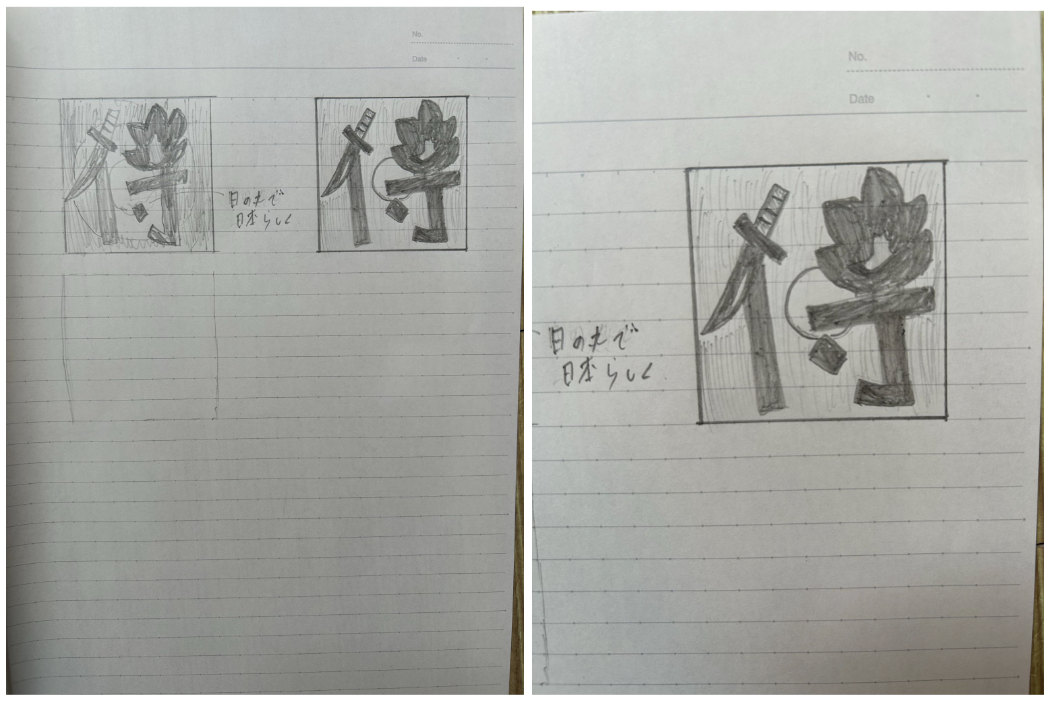 No.
Date
侍
侍
日の丸で
日本らしく
No.
Date
侍
日の丸で
日本らしく